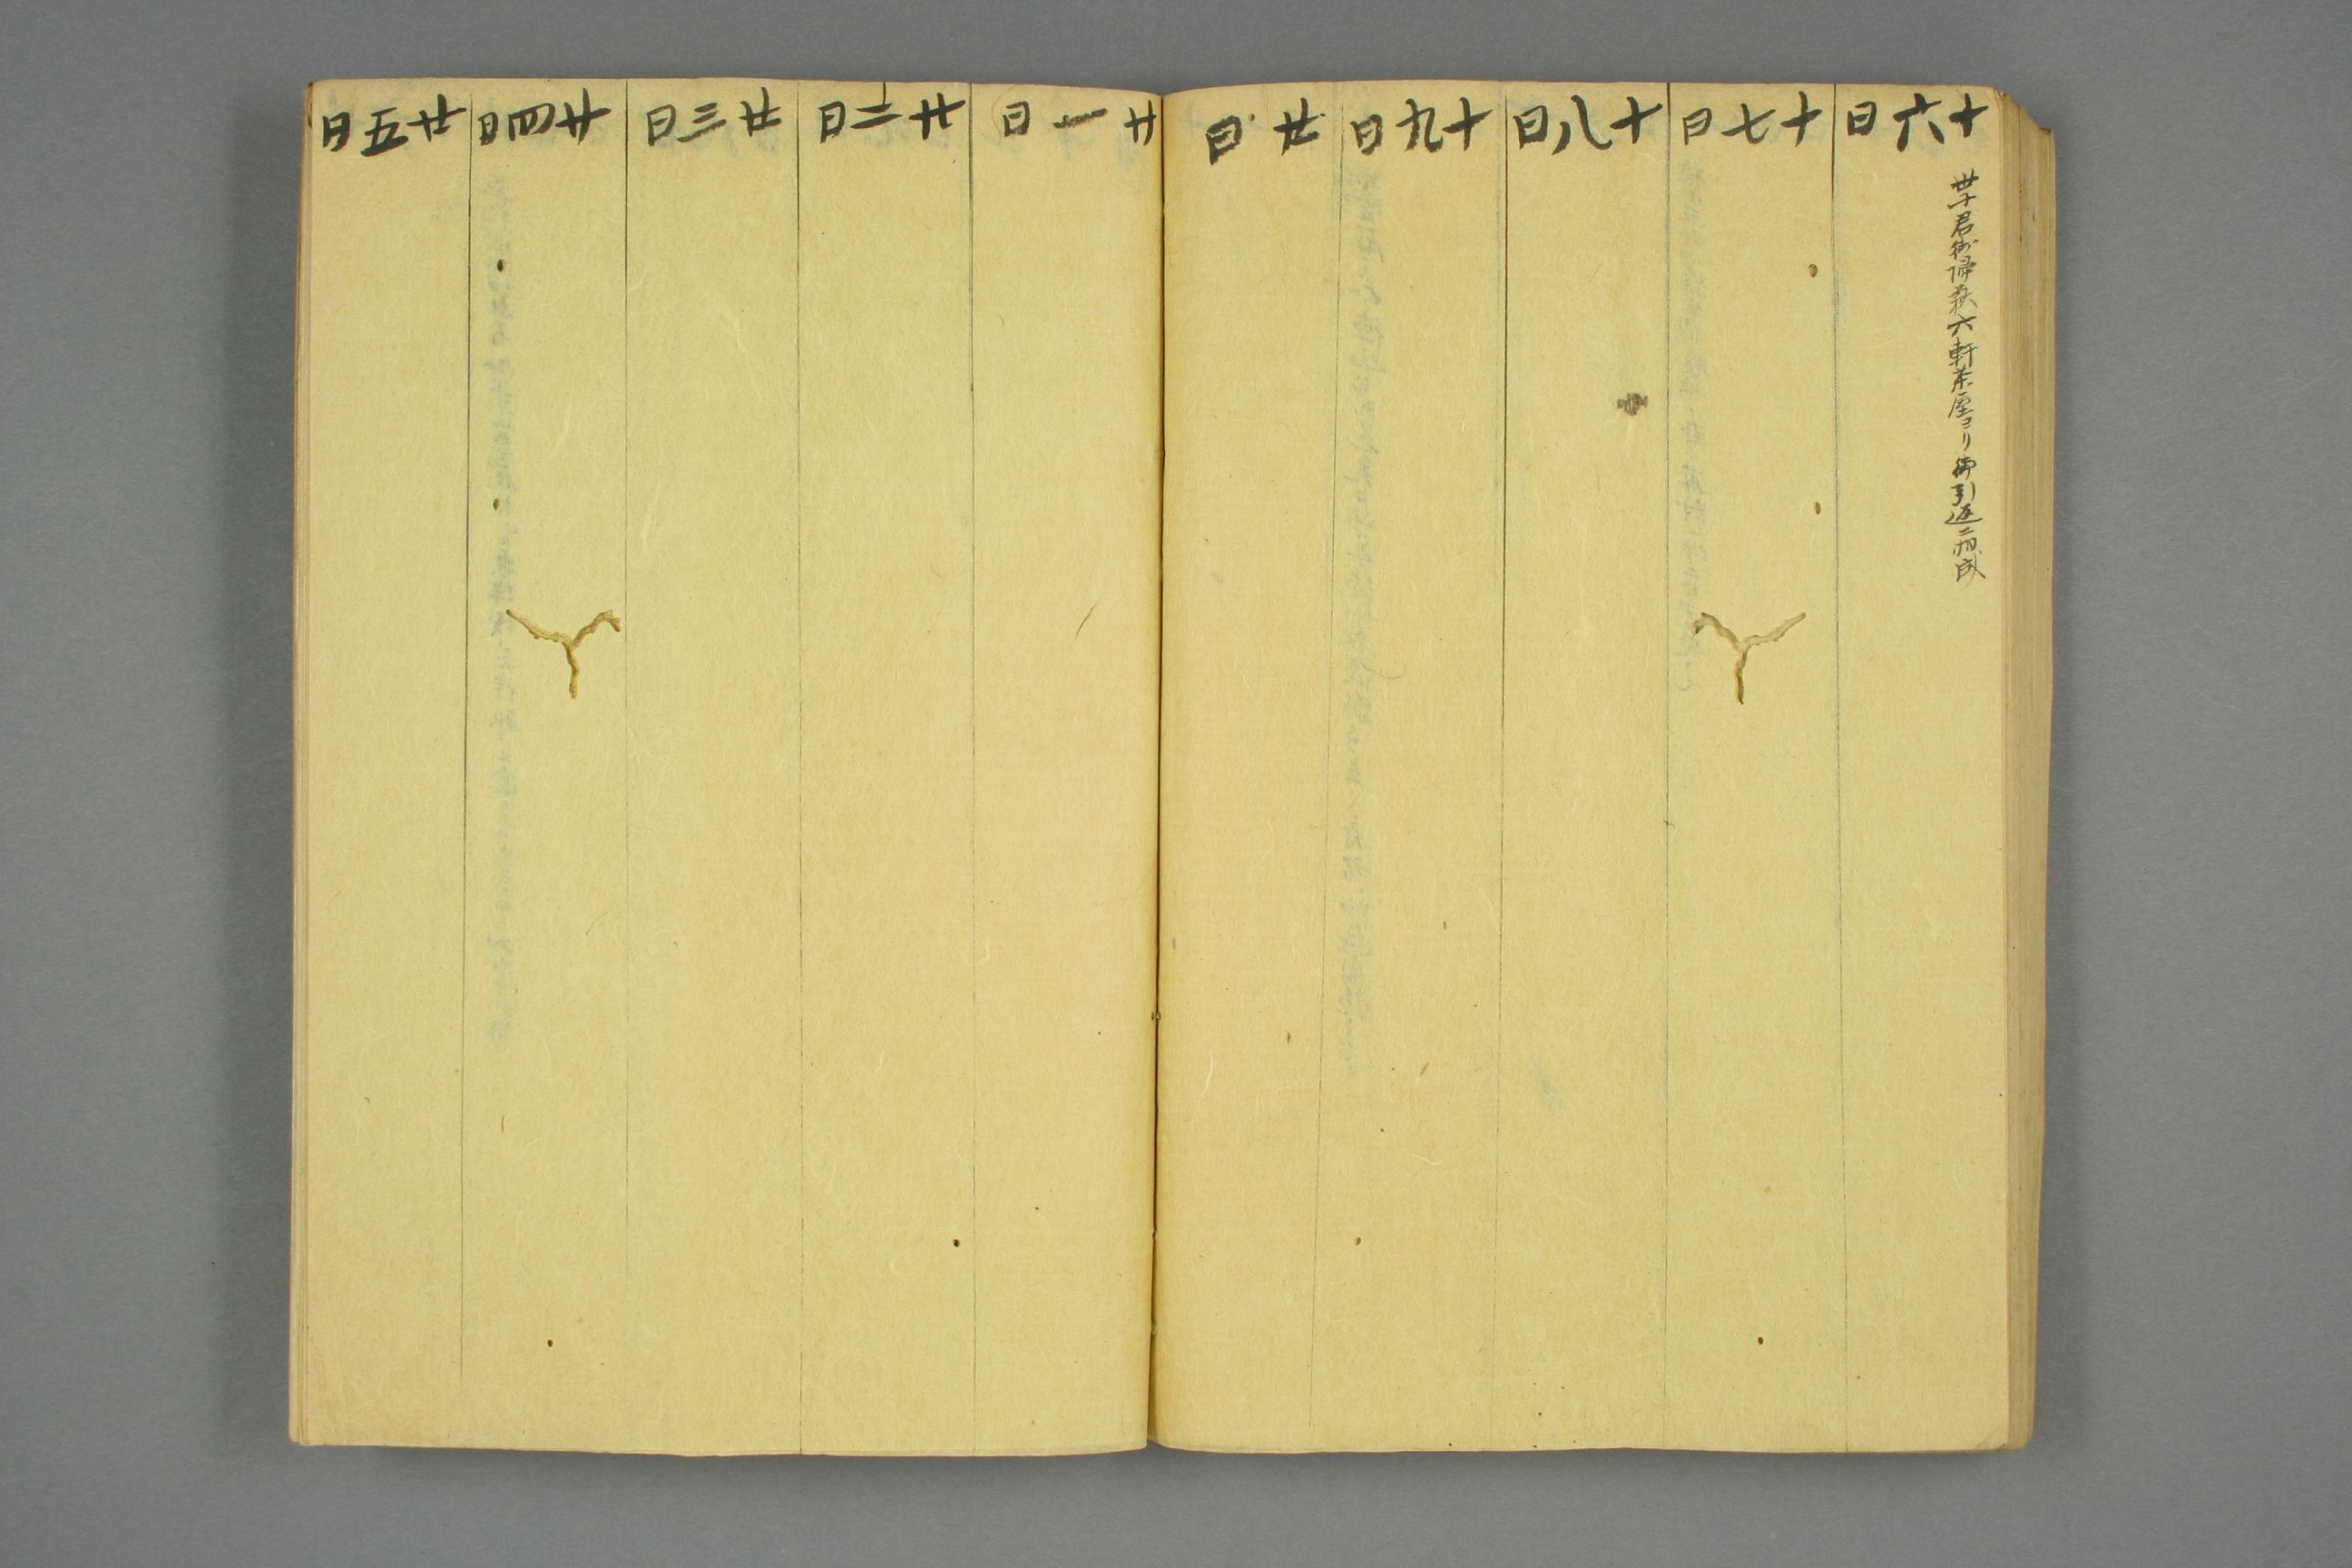 十六日
世子君御帰萩六軒茶屋ヨリ御引返ニ相成
十七日
十八日
十九日
廿日
廿一日
廿二日
廿三日
廿四日
廿五日